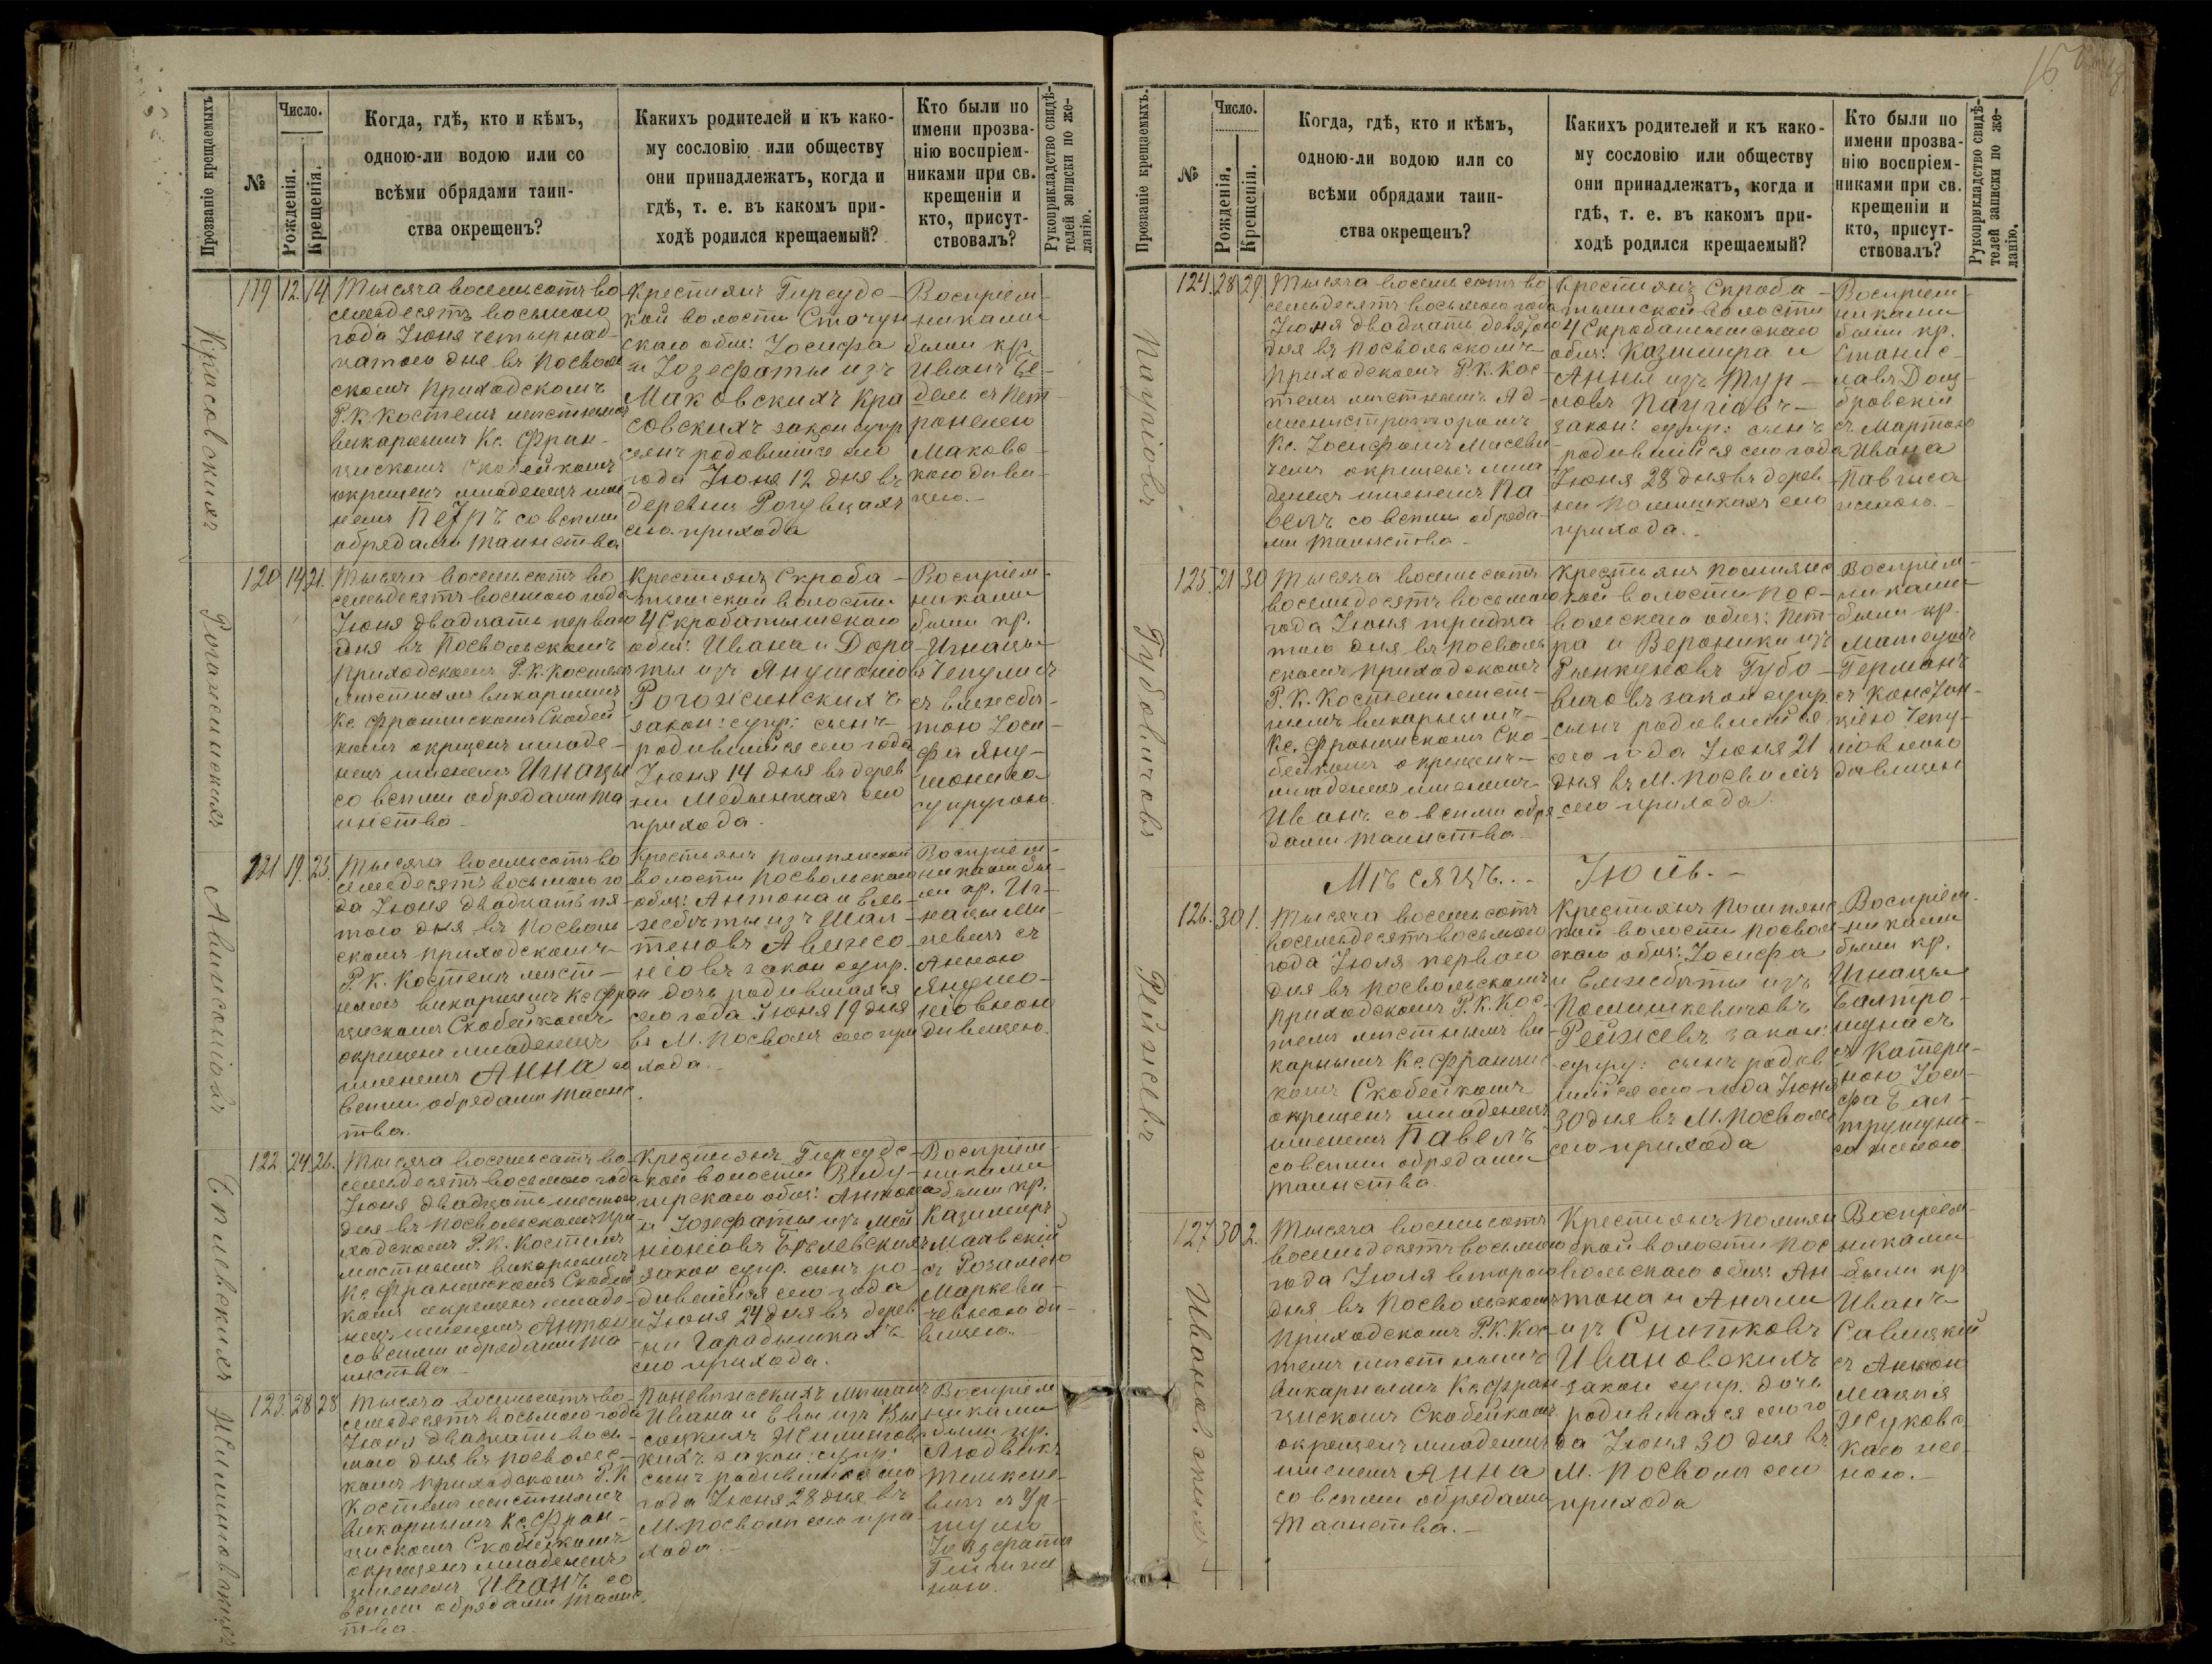 Прозваніе крещаемыхъ
№
Число.
Рожденія.
Крещенія.
Когда, гдѣ, кто и кѣмъ,
одною-ли водою или со
всѣми обрядами таин-
ства окрещенъ?
Какихъ родителей и къ како-
му сословію или обществу
они принадлежатъ, когда и
гдѣ, т. е. въ какомъ при-
ходѣ родился крещаемый?
Кто были по
имени прозва-
нію воспріем-
никами при св.
крещеніи и
кто, присут-
ствовалъ?
Рукоприкладство свидѣ-
телей записки по же-
ланію.
Красовскихъ
119 12. 14.
Тысяча восемьсотъ во
семьдесятъ восьмого
года Іюня четырнад-
цатого дня въ Посволь
скомъ приходскомъ
Р.К. Костелѣ мѣстнымъ
викарнымъ Кс. Фран-
цискомъ Скобейкомъ
окрещенъ младенецъ име
немъ Петръ со всѣми
обрядами таинства
Крестьянъ Гирсудс-
кой волости Стачун
скаго общ: Іосифа
и Іозефаты изъ
Маковскихъ Кра
совскихъ закон супр
сынъ родовшійся сего
года Іюня 12 дня въ
деревни
сего прихода
Воспріем-
никами
были кр.
Иванъ
съ Пет-
ронелею
Маковс-
кою дѣви-
цею.-
Рогожинскихъ
120 14 21.
Тысяча восемьсотъ во
семьдесятъ восьмого года
Іюня двадцать первого
дня въ Посвольскомъ
приходскомъ Р.К. Костелѣ
мѣстнымъ викарнымъ
Кс. Францискомъ Скобей
комъ окрещенъ младе-
нецъ именемъ Игнацы
со всѣми обрядами та
инства
Крестьянъ Скроба-
тышской волости
4 Скробатышскаго
общ: Ивана и Доро-
ты изъ
Рогожинскихъ
закон: супр: сынъ
родившійся сего года
Іюня 14 дня въ дерев
ни Медынкахъ сего
прихода.
Воспріем-
никами
были кр.
Игнацы
съ Елжебѣ-
тою Іоси-
фа Яну-
супругою
121 19. 25.
Тысяча восемьсотъ во
семьдесятъ восьмого го
да Іюня двадцать пя-
того дня въ Посволь
скомъ приходскомъ
Р.К. Костелѣ мѣст-
нымъ викарнымъ Кс Фран
цискомъ Скобейкомъ
окрещенъ младенецъ
именемъ Анна со
всѣми обрядами таинс
тва.
Крестьянъ Помпянской
волости Посвольскаго
общ: Антона и Ель-
жебѣты изъ Шал-
теновъ
закон супр.
дочь родившаяся
сего года Іюня 19 дня
въ М. Посволѣ сего при
хода.
Воспріем-
никами бы-
ли кр. Иг-
нацы Ми-
съ
Анною
дѣвицею.
122. 24. 26.
Тысяча восемьсотъ во-
семьдесятъ восьмого года
Іюня двадцать шестого
дня въ Посвольскомъ при
ходскомъ Р.К. Костелѣ
мѣстнымъ викарнымъ
Кс Францискомъ Скобей
комъ окрещенъ младе-
нецъ именемъ Антони
со всѣми обрядами та
инства
Крестьянъ Гирсудс-
кой волости
общ: Антона
и Іозефаты изъ
закон супр. сынъ ро-
дившійся сего года
Іюня 24 дня въ дерев-
ни
сего прихода.
Воспріем-
никами
были кр.
Казимиръ
съ Розалею
Маркеви-
чевною дѣ-
вицею.
123. 28 28
Тысяча восемьсотъ во-
семьдесятъ восьмого года
Іюня двадцати вось-
мого дня въ Посвольс-
комъ приходскомъ Р.К
Костелѣ мѣстнымъ
викарнымъ Кс. Фран-
цискомъ Скобейкомъ
окрещенъ младенецъ
именемъ Иванъ со
всѣми обрядами таинс
тва
Поневѣжскихъ мѣщанъ
Ивана и Евы изъ Вы
соцкихъ
закон: супр:
сынъ родившійся сего
года Іюня 28 дня въ
М. Посволѣ сего при
хода.
Воспріем
никами
были кр.
Людвикъ
съ Ур-
шулею
Іозефата
ною.
Прозваніе крещаемыхъ.
№
Число.
Рожденія.
Крещенія.
Когда, гдѣ, кто и кѣмъ,
одною-ли водою или со
всѣми обрядами таин-
ства окрещенъ?
Какихъ родителей и къ како-
му сословію или обществу
они принадлежатъ, когда и
гдѣ, т. е. въ какомъ при-
ходѣ родился крещаемый?
Кто были по
имени прозва-
нію воспріем-
никами при св.
крещеніи и
кто, присут-
ствовалъ?
Рукоприкладство свидѣ-
телей записки по же-
ланію.
124. 28 29.
Тысяча восемьсотъ во
семьдесятъ восьмого года
Іюня двадцать девятого
дня въ Посвольскомъ
приходскомъ Р.К. Кос-
телѣ мѣстнымъ Ад-
министраторомъ
Кс. Іосифомъ
окрещенъ мла
денецъ именемъ Па
велъ со всѣми обряда-
ми таинства
Крестьянъ Скроба-
тышской волости
4 Скробатышскаго
общ: Казимира и
Анны изъ Тур-
новъ
закон: супр: сынъ
родившійся сего года
Іюня 28 дня въ дерев
ни сего
прихода.
Воспріем
никами
были кр.
Станис-
лавъ Дом-
бровскій
съ Мартою
Ивана
женою.
Губовичовъ
125. 21 30
Тысяча восемьсотъ
восемьдесятъ восьмого
года Іюня тридца
того дня въ Посволь
скомъ приходскомъ
Р.К. Костелѣ мѣст-
нымъ викарнымъ
Кс. Францискомъ Ско-
бейкомъ окрещенъ
младенецъ именемъ
Иванъ со всѣми обря
дами таинства
Крестьянъ Помпянс
кой волости Пос-
вольскаго общ: Пет-
ра и Вероники изъ
Губо-
вичовъ закон супр.
сынъ родовшійся
сего года Іюня 21
дня въ М. Посволѣ
сего прихода.
Воспріем-
никами
были кр.
Матеушъ
Германъ
съ Констан-
ціею
дѣвицею
Мѣсяцъ.. - Іюль. -
Рейжевъ
126. 30 1.
Тысяча восемьсотъ
восемьдесятъ восьмого
года Іюля первого
дня въ Посвольскомъ
приходскомъ Р.К. Кос-
телѣ мѣстнымъ ви
карнымъ Кс. Францис
комъ Скобейкомъ
окрещенъ младенецъ
именемъ Павелъ
со всѣми обрядами
таинства.
Крестьянъ Помпянс
кой волости Посволь
скаго общ: Іосифа
и Елжебѣты изъ
Рейжевъ закон:
супру: сынъ родив
шійся сего года Іюня
30 дня въ М. Посволѣ
сего прихода
Воспріем-
никами
были кр.
Игнацы
Балтро-
съ Катери-
ною Іоси-
фа Бал-
женою
Ивановскихъ
127 30 2.
Тысяча восемьсотъ
восемьдесятъ восьмого
года Іюля второго
дня въ Посвольскомъ
приходскомъ Р.К. Кос
телѣ мѣстнымъ
викарнымъ Кс Фран
цискомъ Скобейкомъ
окрещенъ младенецъ
именемъ Анна
со всѣми обрядами
таинства.
Крестьянъ Помпян
ской волости Пос
вольскаго общ: Ан
тона и
изъ Снитковъ
Ивановскихъ
закон супр. дочь
родившаяся сего го
да Іюня 30 дня въ
М. Посволѣ сего
прихода
Воспріем-
никами
были кр
Иванъ
Савицкій
съ Анною
Жуковс
каго же-
ною.